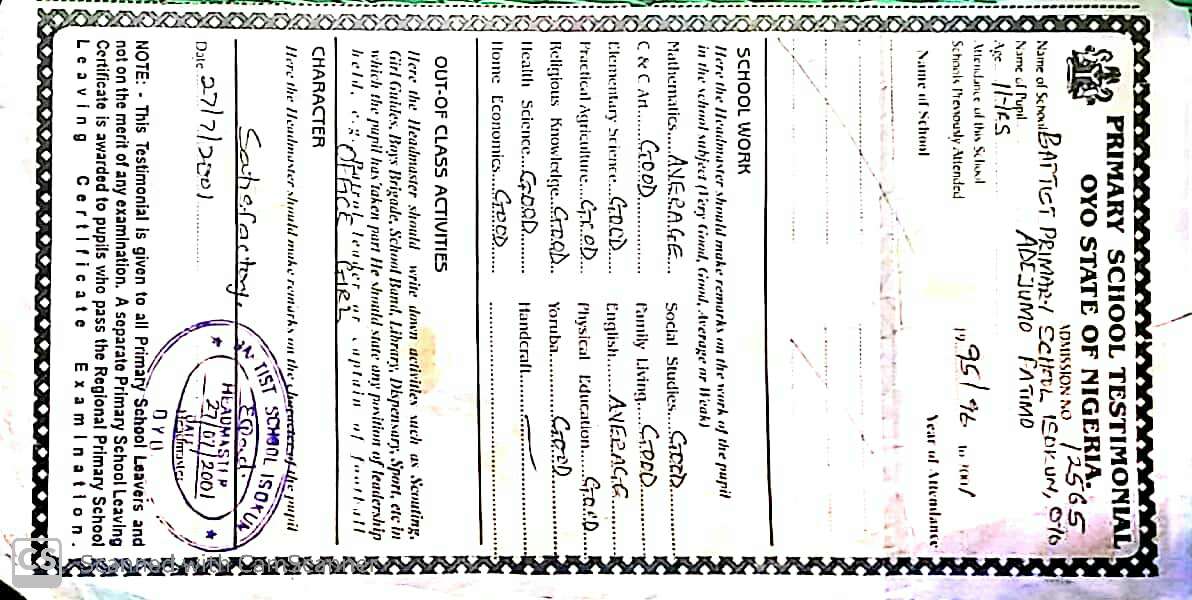 PRIMARY SCHOOL TESTIMONIAL
OYO STATE OF NIGERIA.
ADMISSION NO 12565
Name of School BAPTIST PRIMARY SCHOOL ISOKUN, OYO
Name of Pupil ADEJUMO FATIMO
Age 11 YRS
Attendance of this School 19 95/96 to 2001
Schools Previously Attended
Name of School Year of Attendance
SCHOOL WORK
Here the Headmaster should make remarks on the work of the pupil
in the school subject (Very Good, Good, Average or Weak)
Mathematics....AVERAGE... Social Studies...GOOD
C & C Art.....GOOD....... Family Living....GOOD
Elementary Science...GOOD... English....AVERAGE
Practical Agriculture....GOOD Physical Education......GOOD
Religious Knowledge..GOOD Yoruba........GOOD
Health Science...GOOD Handcraft
Home Economics....GOOD
OUT-OF CLASS ACTIVITIES
Here the Headmaster should write down activities such as Scouting,
Girl Guides, Boys Brigade, School Band, Library, Dispensary, Sport, etc in
which the pupil has taken part He should state any position of leadership
held, e.g. Pupil leader or captain of football
OFFICE GIRL
CHARACTER
Here the Headmaster should make remarks on the character of the pupil
Satisfactory.
Date 27/7/2001
Headmaster
BAPTIST SCHOOL ISOKUN
HEADMASTER
27/07/2001
DATE
OYO
NOTE: - This Testimonial is given to all Primary School Leavers and
not on the merit of any examination. A separate Primary School Leaving
Certificate is awarded to pupils who pass the Regional Primary School
Leaving Certificate Examination.
CS Scanned with CamScanner